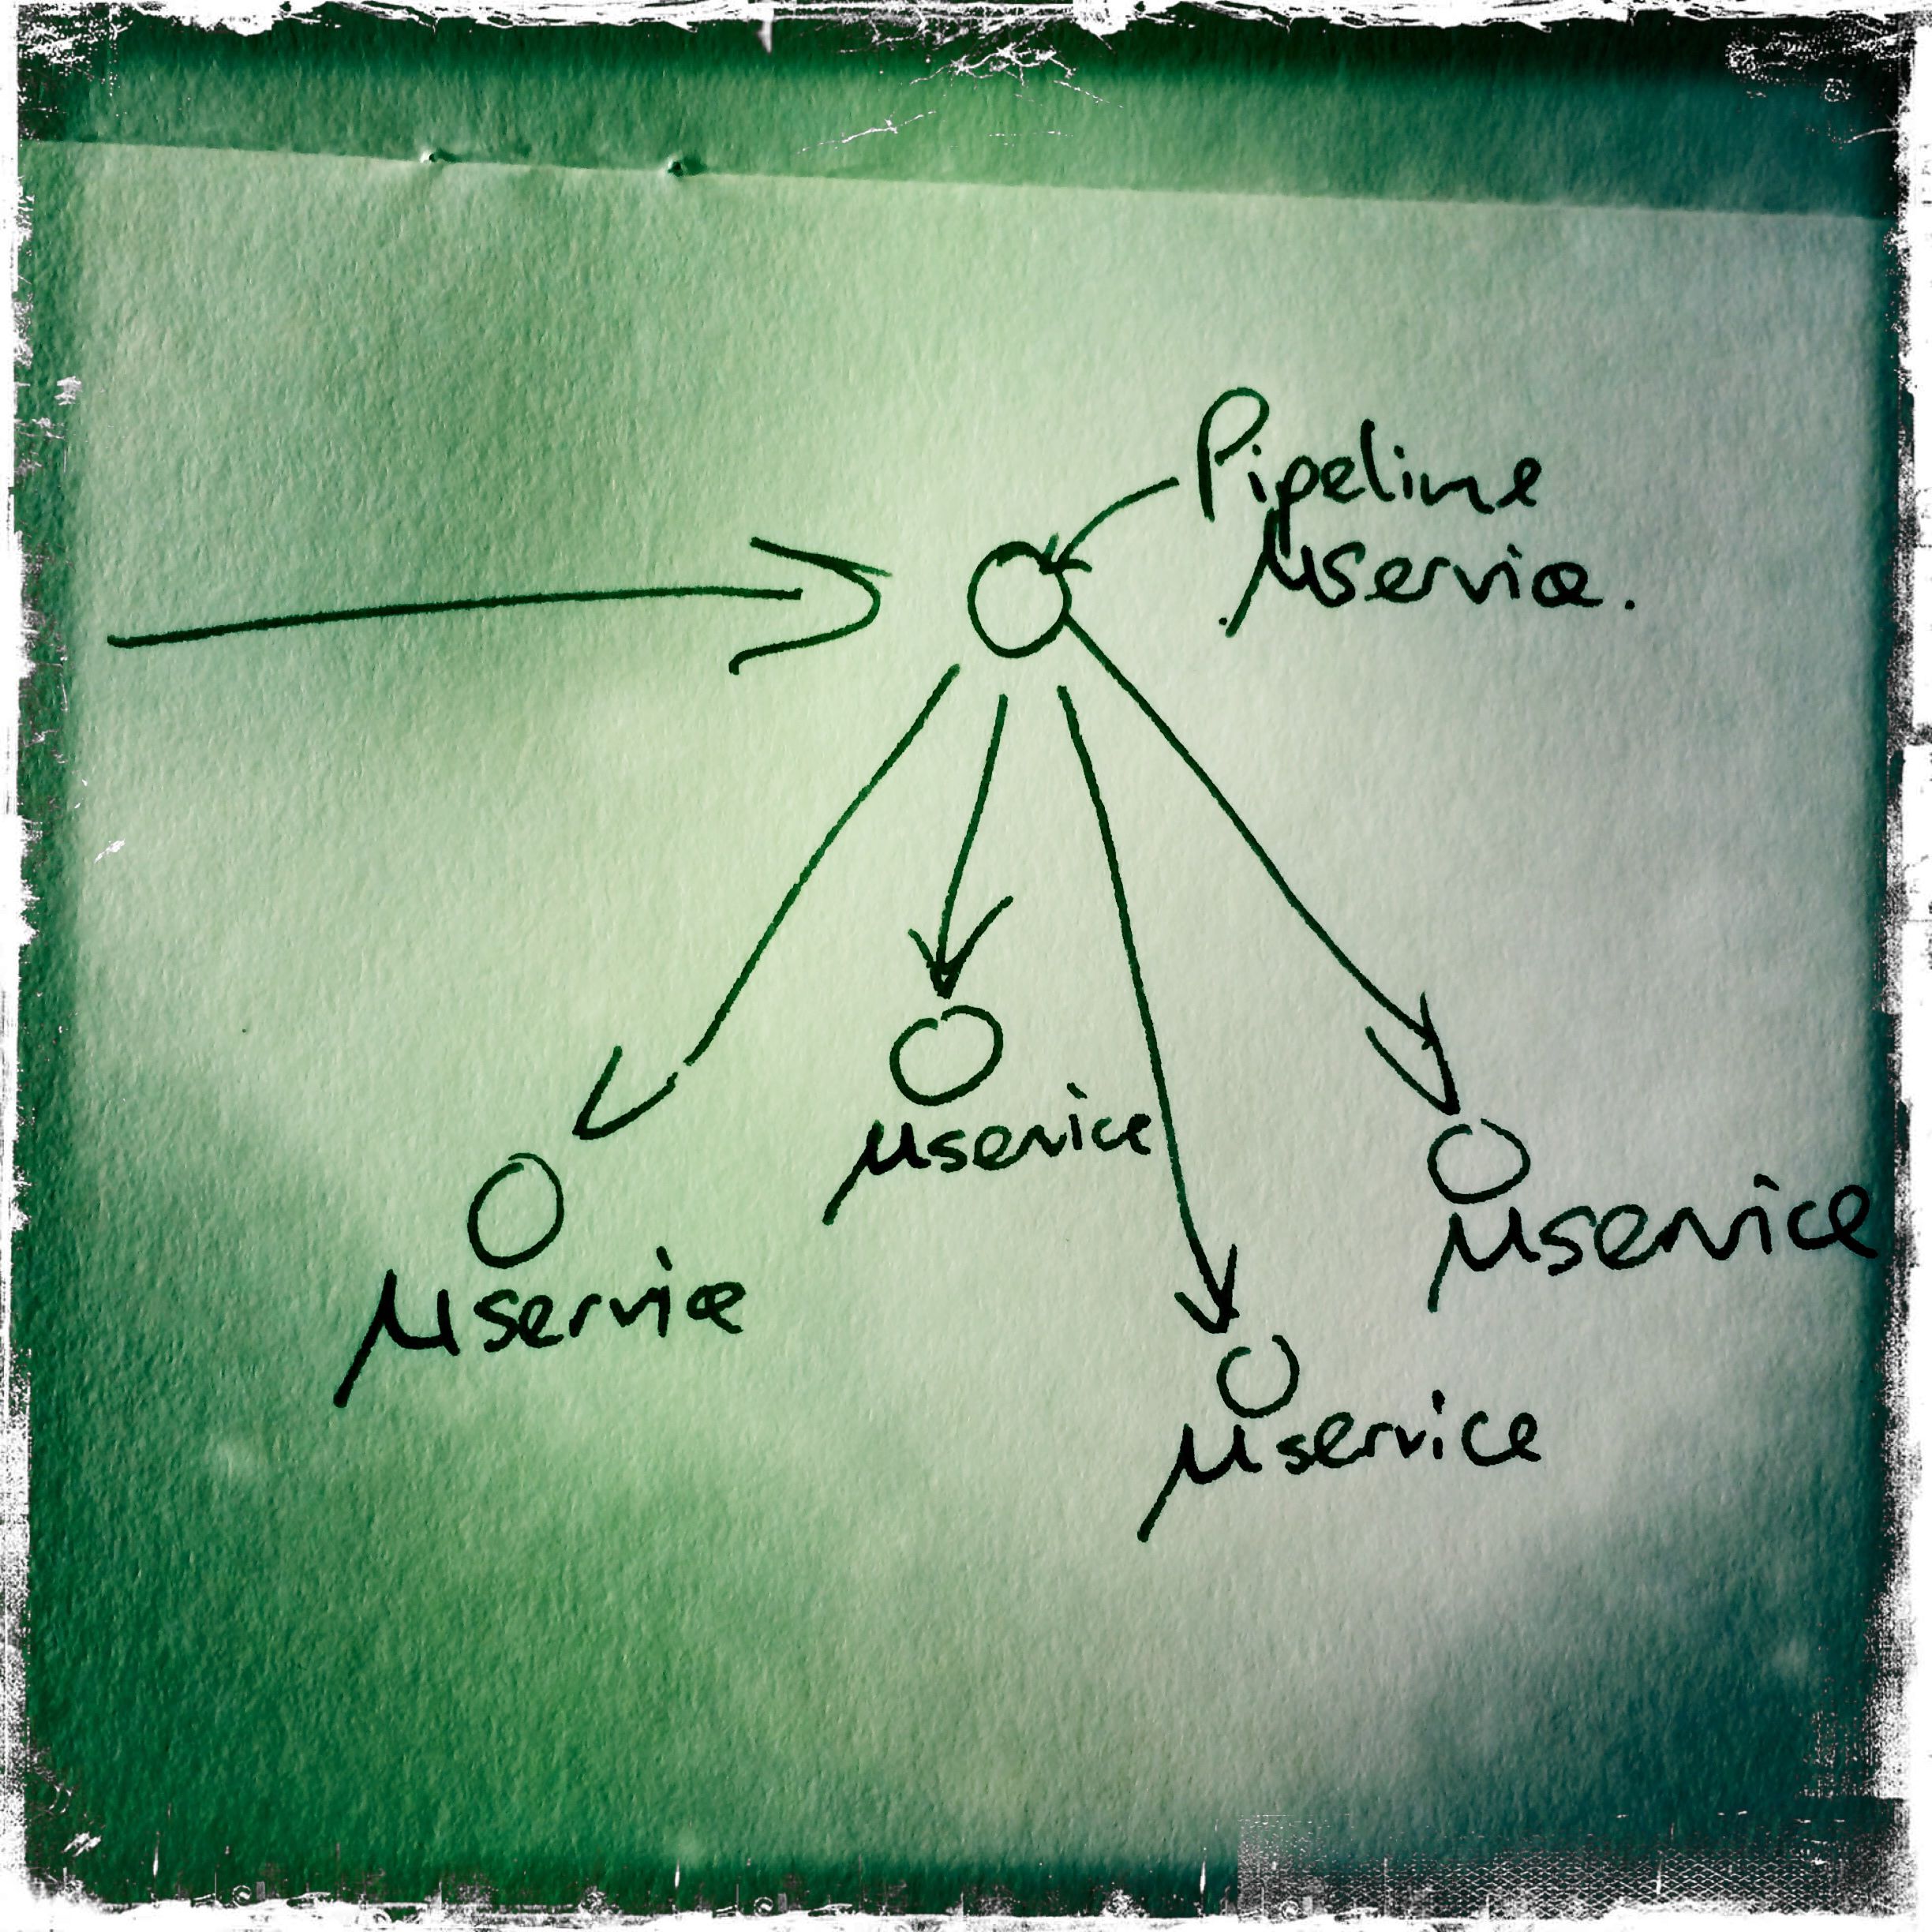 Pipeline
μservice.
μservice
μservice
μservice
μservice